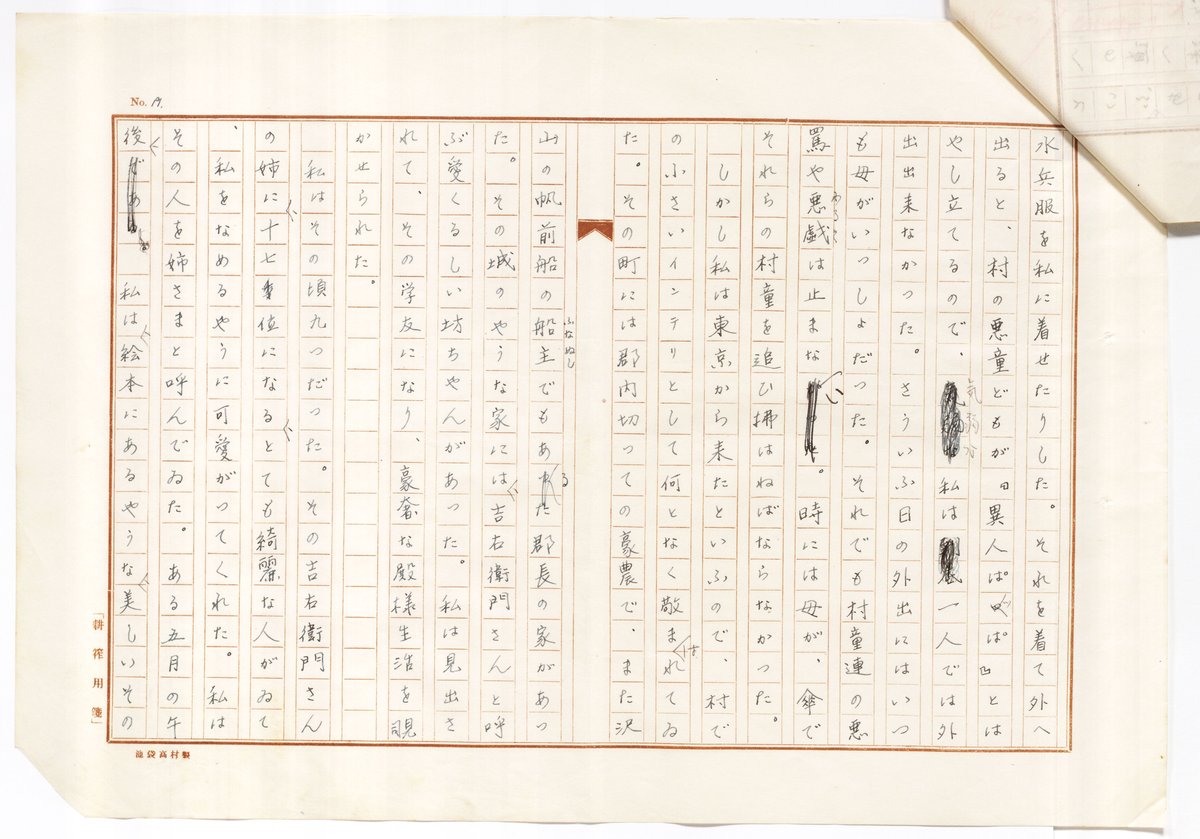 No. 19.
水兵服を私に着せたりした。それを着て外へ
出ると、村の悪童どもが「異人ぱっぱ」とは
やし立てるので、気弱な私は一人では外
出出来なかつた。さういふ日の外出にはいつ
も母がいつしよだつた。それでも村童連の悪
罵や悪戯は止まない。時には母が、傘で
それらの村童を追ひ拂はねばならなかつた。
しかし私は東京から来たといふので、村で
のふさいインテリとして何となく敬まはれてゐ
た。その町には郡内切つての豪農で、また沢
山の帆前船の船主でもある郡長の家があつ
ふなぬし
た。その城のやうな家には吉右衛門さんと呼
ぶ愛くるしい坊ちやんがあつた。私は見出さ
れて、その学友になり、豪奢な殿様生活を覗
かせられた。
私はその頃九つだつた。その吉右衛門さん
の姉に十七位になるとても綺麗な人がゐて
、私をなめるやうに可愛がつてくれた。私は
その人を姉さまと呼んでゐた。ある五月の午
後 私は絵本にあるやうな美しいその
「耕筰用箋」
池袋高村製